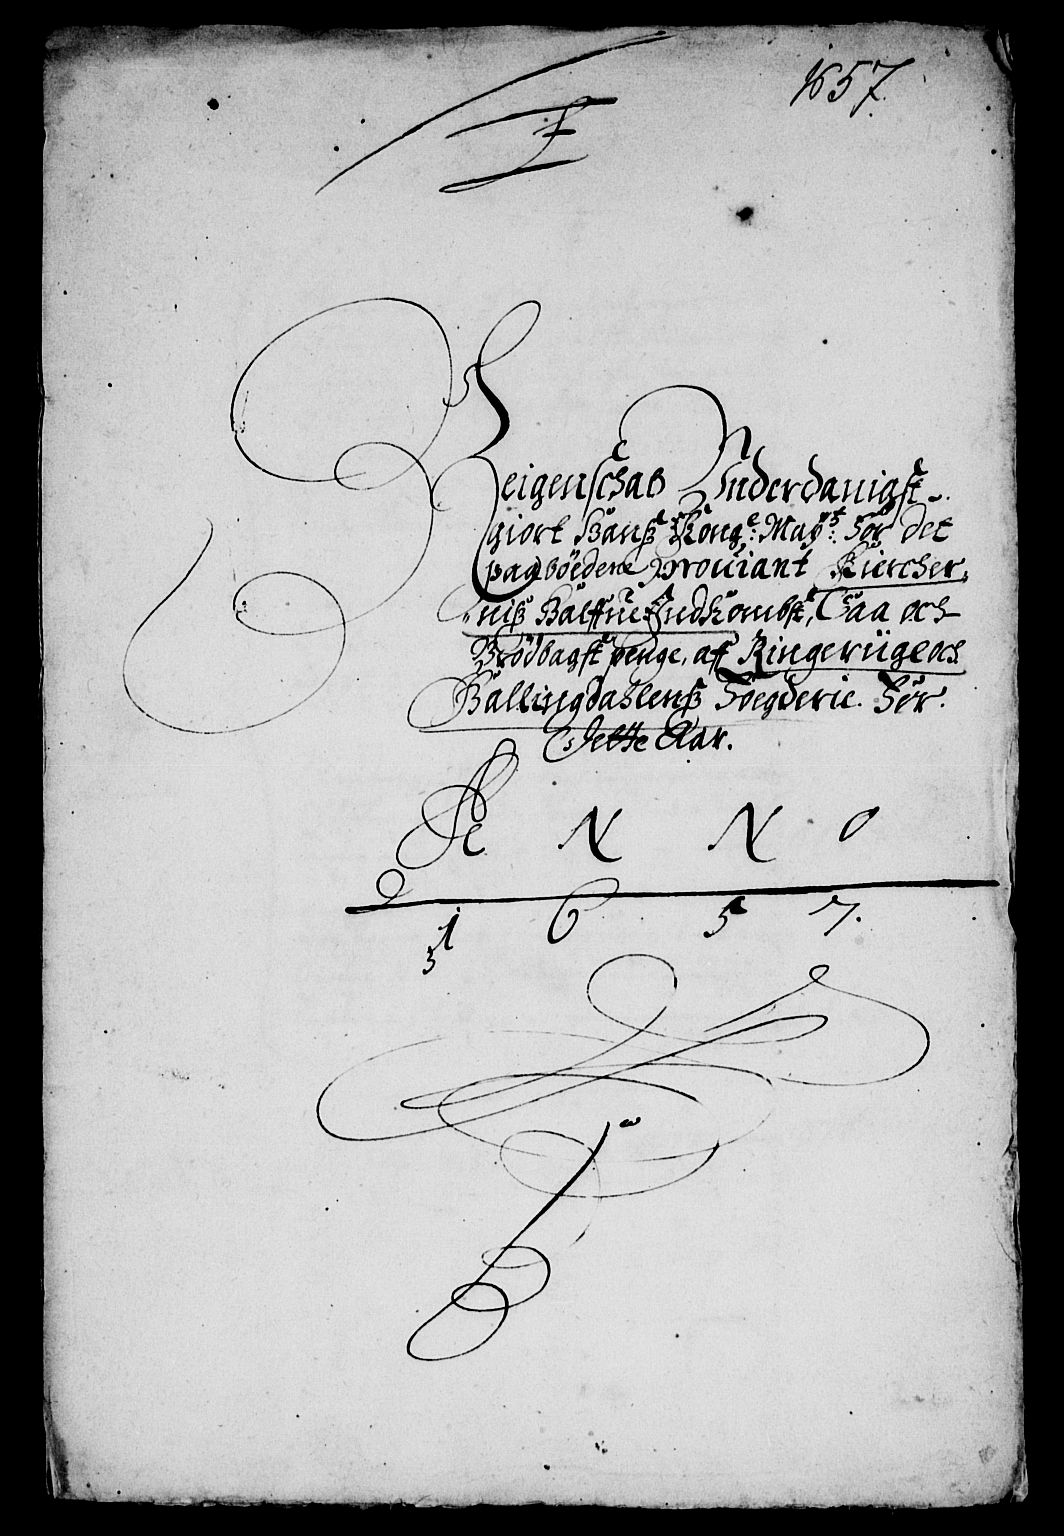 1657.
Reigenschab Underdanigst
giort Hanß Kong: May: for det
paabödene Prouiant Kiercher,
niß Halffue Indkombst, Saa och
Brödbagst penge, aff Ringeriige och
Hallingdahlenß Foegderie. For
dette Aar.
A N N O
1 6 5 7.